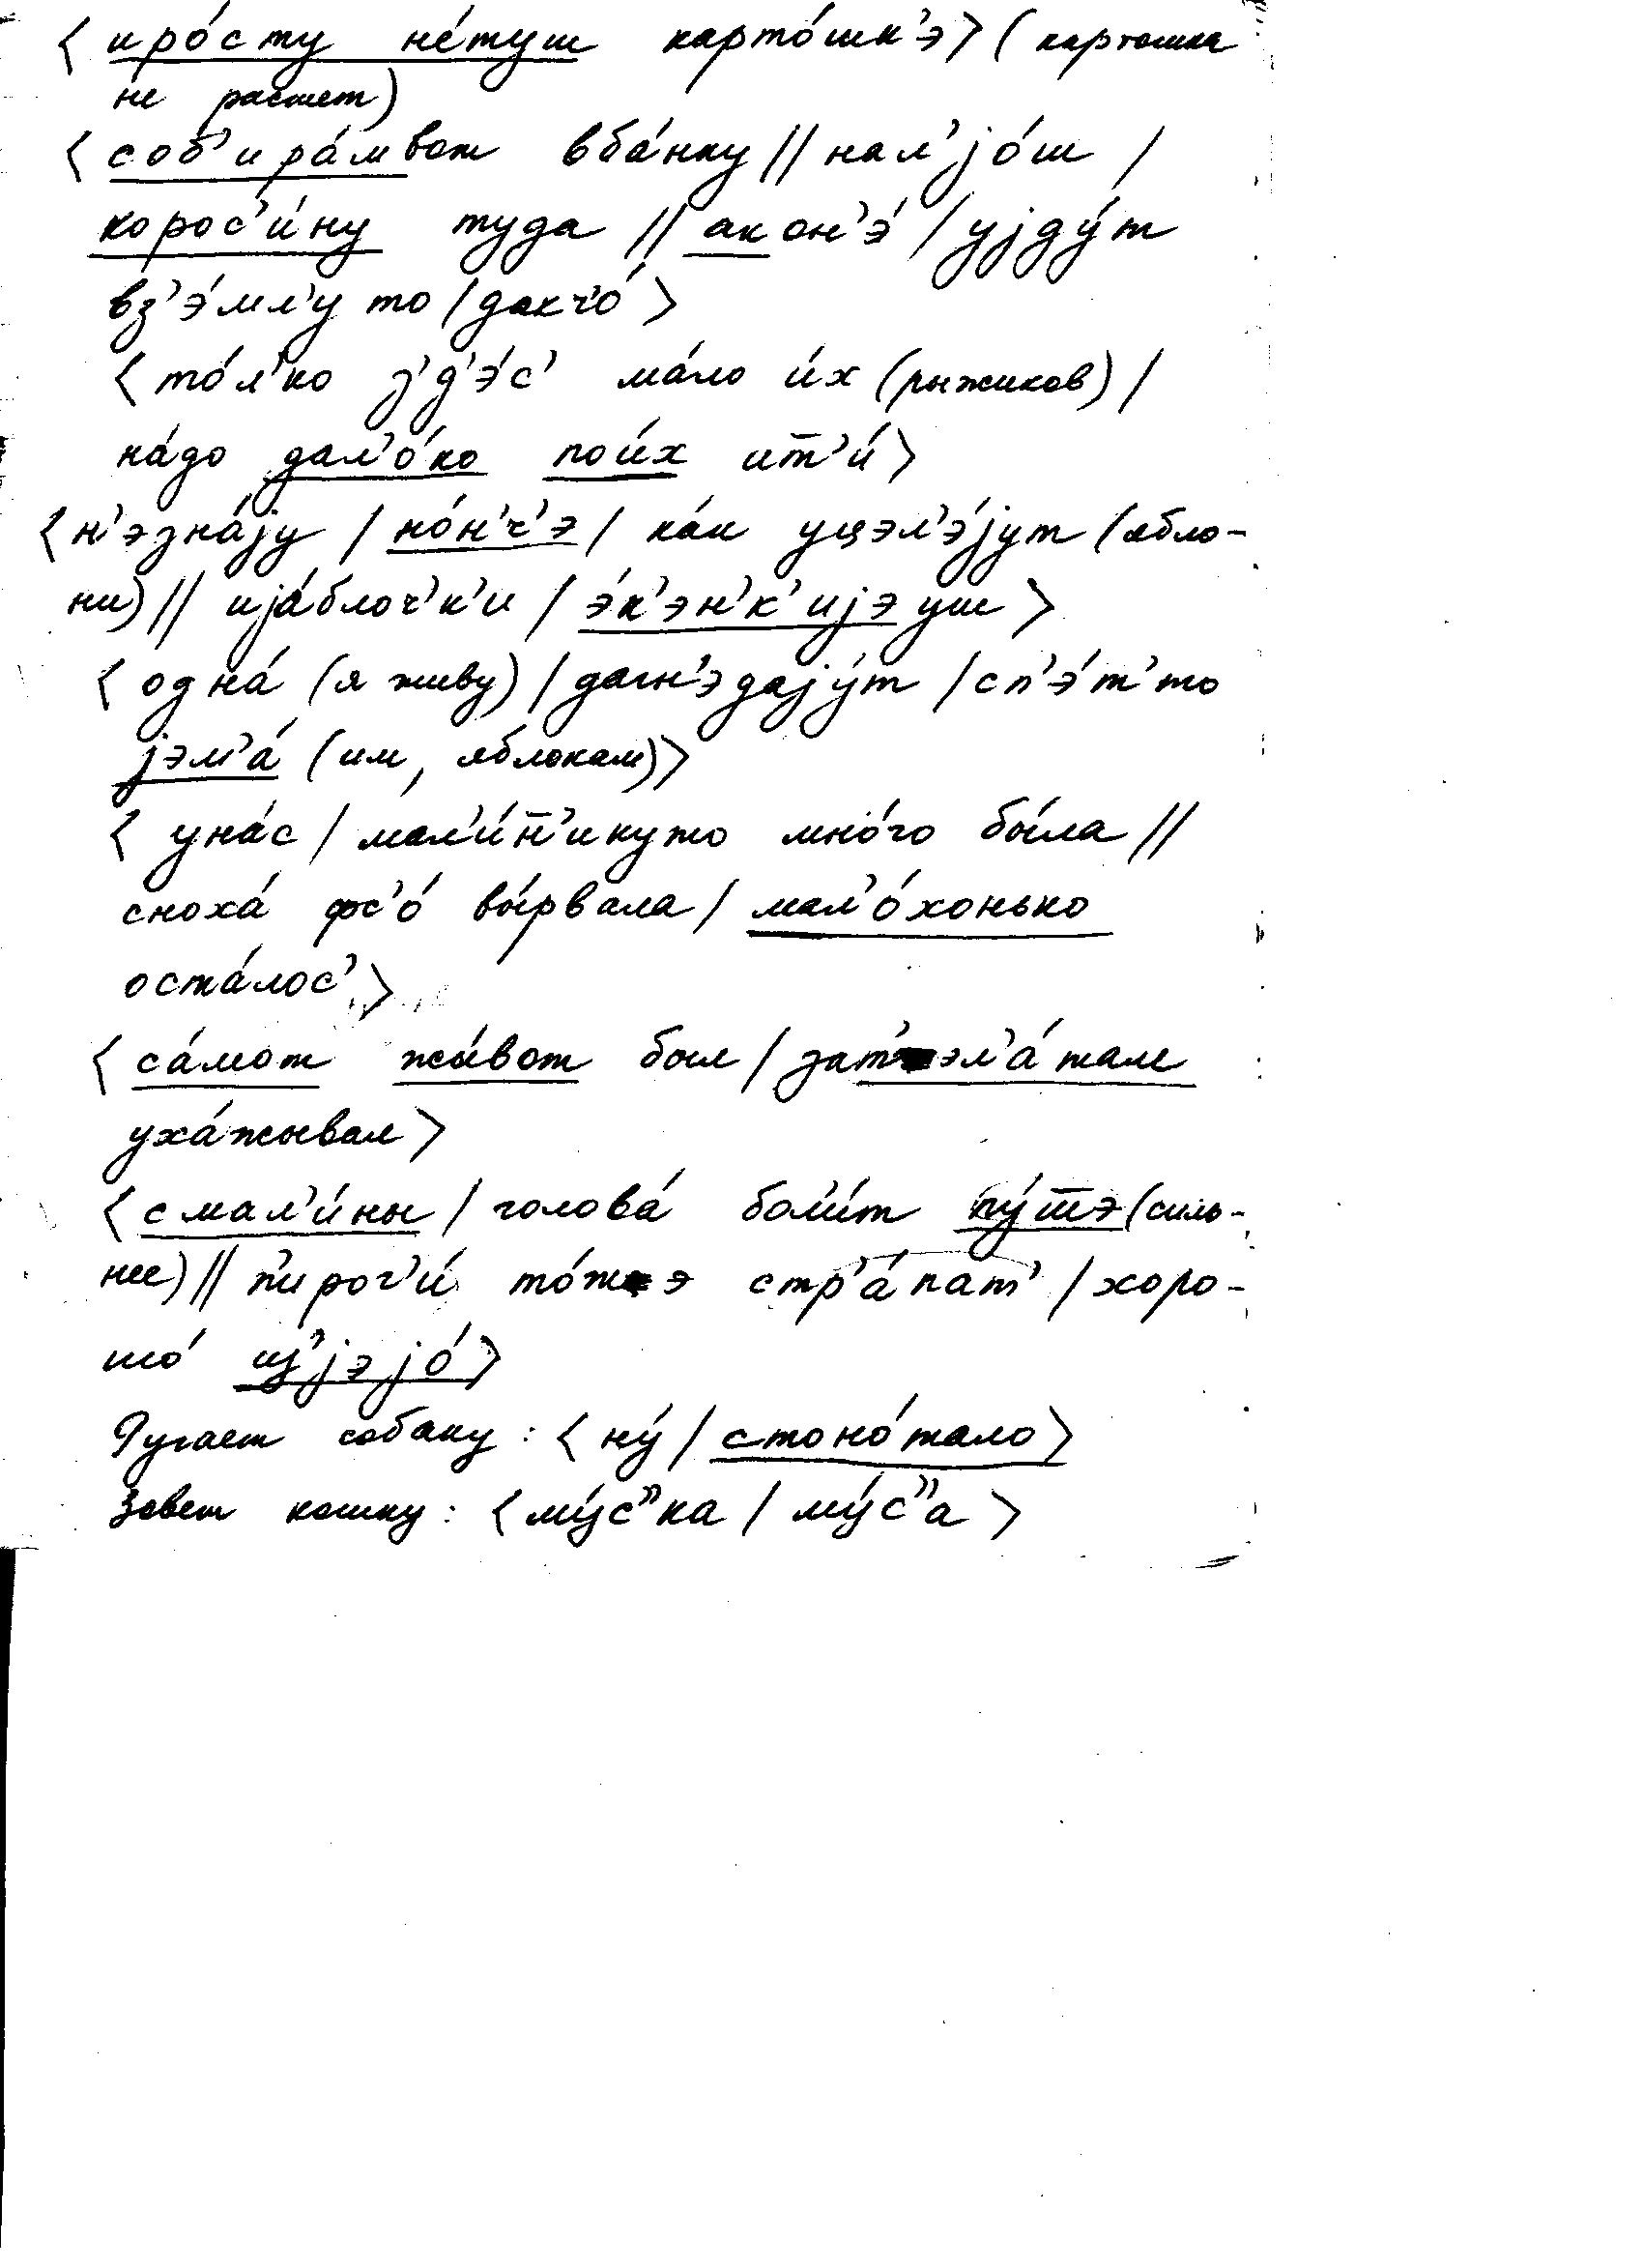 ⟨ иро́сту не́туш карто́шк'э⟩ (картошка
не растет)
⟨ соб'ира́мвот вба́нку // нал'jо́ш /
корос'и́ну туда // акон'э́ / уjду́т
вз'э́мл'у то / дакч'о́ ⟩
⟨ то́л'ко з'д'э́с' ма́ло и́х (рыжиков) /
на́до дал'о́ко пои́х ит̅'и́ ⟩
⟨ н'эзна́jу / но́н'ч'э / ка́к уцэл'э́jут (ябло-
ни) // иjа́блоч'к'и / э́к'эн'к'иjэуш ⟩
⟨ одна́ (я живу) / дагн'эдаjу́т / сп'э́т'то
jэм'а́ (им, яблокам)⟩
⟨ уна́с / мал'и́н̅'икуто мно́го бы́ла //
сноха́ фс'о́ вы́рвала / мал'о́хонько
оста́лос' ⟩
⟨ са́мот жы́вот был / зат'эл'а́тале
уха́жывал ⟩
⟨ смал'и́ны / голова́ бол'и́т пу́т̅э (силь-
нее) // п'ирог'и́ то́жэ стр'а́пат' / хоро-
шо́ из'jэjо́ ⟩
Ругает собаку: ⟨ ну́ / стоно́тало ⟩
Зовет кошку: ⟨ му́с"ка / му́с"а ⟩